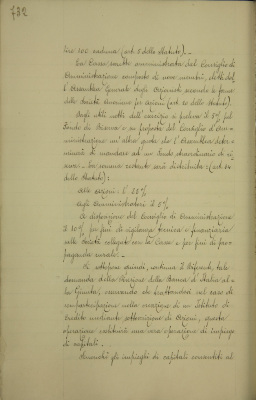 732
lire 100 caduna (art. 5 dello Statuto).
La Cassa sarebbe amministrata dal Consiglio di
Amministrazione composto di nove membri, eletti dal-
l'Assemblea Generale degli Azionisti secondo le forme
delle Società Anonime per azioni (art. 10 dello Statuto).
Dagli utili netti dell'esercizio si preleva il 5% pel
Fondo di Riserva e su proposta del Consiglio d'Am-
ministrazione un'altra quota che l'Assemblea deter-
minerà di mandare ad un Fondo straordinario di ri-
serva. La somma restante sarà distribuita: (art. 34
dello Statuto):
alle azioni: l' 20%
agli Amministratori il 5%
A disposizione del Consiglio di Amministrazione
il 10% per fini di vigilanza tecnica e finanziaria
sulle Società collegate con la Cassa e per fini di pro-
paganda rurale.
Si tratterebbe quindi, continua il Riferente, tale
domanda della Direzione della Banca d'Italia al
la Giunta, osservando che trattandosi nel caso di
compartecipazione nella creazione di un Istituto di
credito mediante sottoscrizione di Azioni, questa
operazione costituirà una vera operazione di impiego
di capitali.
Senonchè gli impieghi di capitali consentiti al